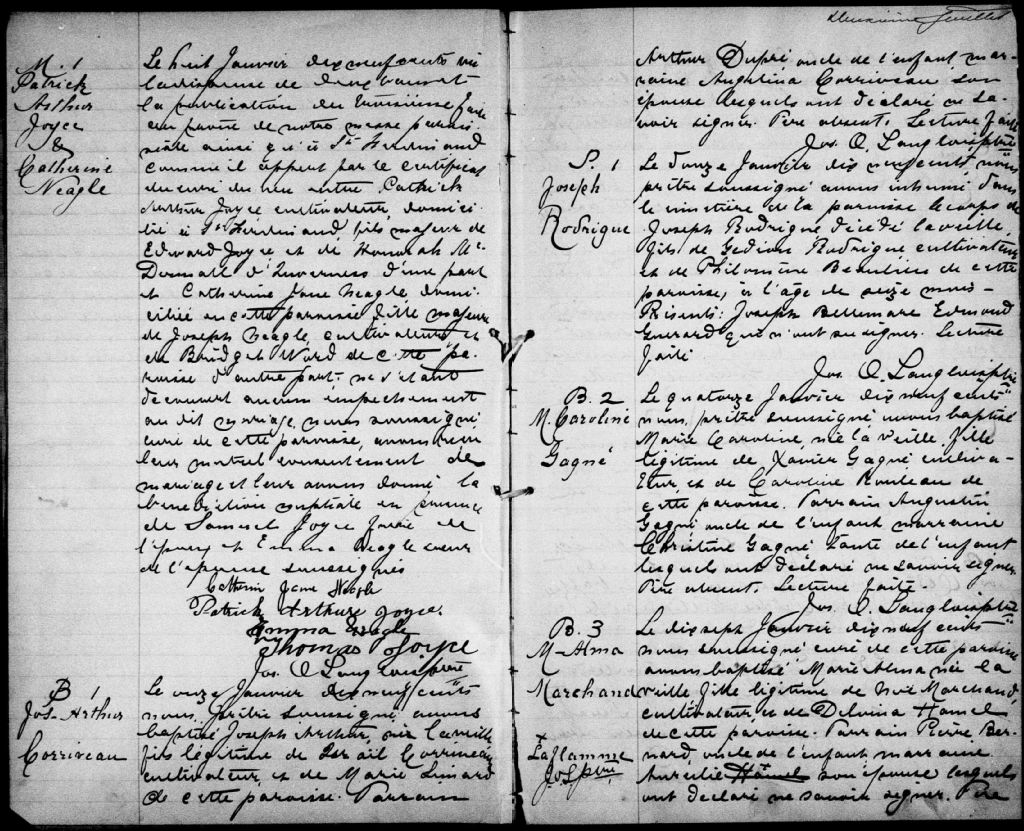 M. 1
Patrick
Arthur
Joyce
&
Catherine
Neagle
Le huit Janvier dix neuf cents vu
la dispense de deux bancs et
la publication du troisième faite
au prône de notre messe parois
siale ainsi qu'à St Ferdinand
comme il appert par le certificat
du curé du lieu entre Patrick
Arthur Joyce cultivateur, domici
lié à St Ferdinand, fils majeur de
Edward Joyce et de Honorah Mc
Donnall d'Inverness d'une part
et Catherine Jane Neagle domi
ciliée en cette paroisse fille majeure
de Joseph Neagle, cultivateur, et
de Bridget Ward de cette pa
roisse d'autre part; ne s'étant
découvert aucun empêchement
au dit mariage, nous soussigné
curé de cette paroisse, avons reçu
leur mutuel consentement de
mariage et leur avons donné la
bénédiction nuptiale en présence
de Samuel Joyce de
l'époux et Emma Neagle soeur
de l'épouse soussignés
Catherin Jane Neagle
Patrick Arthure Joyce
Emma Neagle
Thomas Joyce
Jos. O. Langlois ptre
B 1
Jos-Arthur
Corriveau
Le onze Janvier dix neuf cents
nous prêtre soussigné avons
baptisé Joseph Arthur, né la veille
fils légitime de Israil Corriveau
cultivateur et de Marie Simard
de cette paroisse. Parrain
Deuxième feuillet
Arthur Dupré oncle de l'enfant mar-
raine Angelina Corriveau son
épouse lesquels ont déclaré ne sa-
voir signer. Père absent. Lecture faite
Jos. O. Langlois ptre
S. 1
Joseph
Rodrigue
Le douze Janvier dix neuf cents, nous
prêtre soussigné avons inhumé dans
le cimetière de la paroisse le corps de
Joseph Rodrigue décédé la veille,
fils de Gédéon Rodrigue cultivateur
et de Philomène Beaulieu de cette
paroisse, à l'âge de seize mois.
Présents: Joseph Bellemare Edmond
Guerard qui n'ont su signer. Lecture
faite
Jos. O. Langlois ptre
B. 2
M. Caroline
Gagné
Le quatorze Janvier dix neuf cents
nous, prêtre soussigné avons baptisé
Marie Caroline née la veille, fille
légitime de Xavier Gagné cultiva-
teur, et de Caroline Rouleau de
cette paroisse. Parrain Augustin
Gagné oncle de l'enfant marraine
Christine Gagné tante de l'enfant
lesquels ont déclaré ne savoir signer
Père absent. Lecture faite
Jos. O. Langlois ptre
B. 3
M-Alma
Marchand
Laflamme
Jos ptre
Le dix sept Janvier dix neuf cents
nous soussigné curé de cette paroisse
avons baptisé Marie Alma née la
veille fille légitime de Noé Marchand,
cultivateur, et de Delvina Hamel
de cette paroisse. Parrain Pierre Ber-
nard, oncle de l'enfant marraine
Aurelie Hamel son épouse lesquels
ont déclaré ne savoir signer. Père